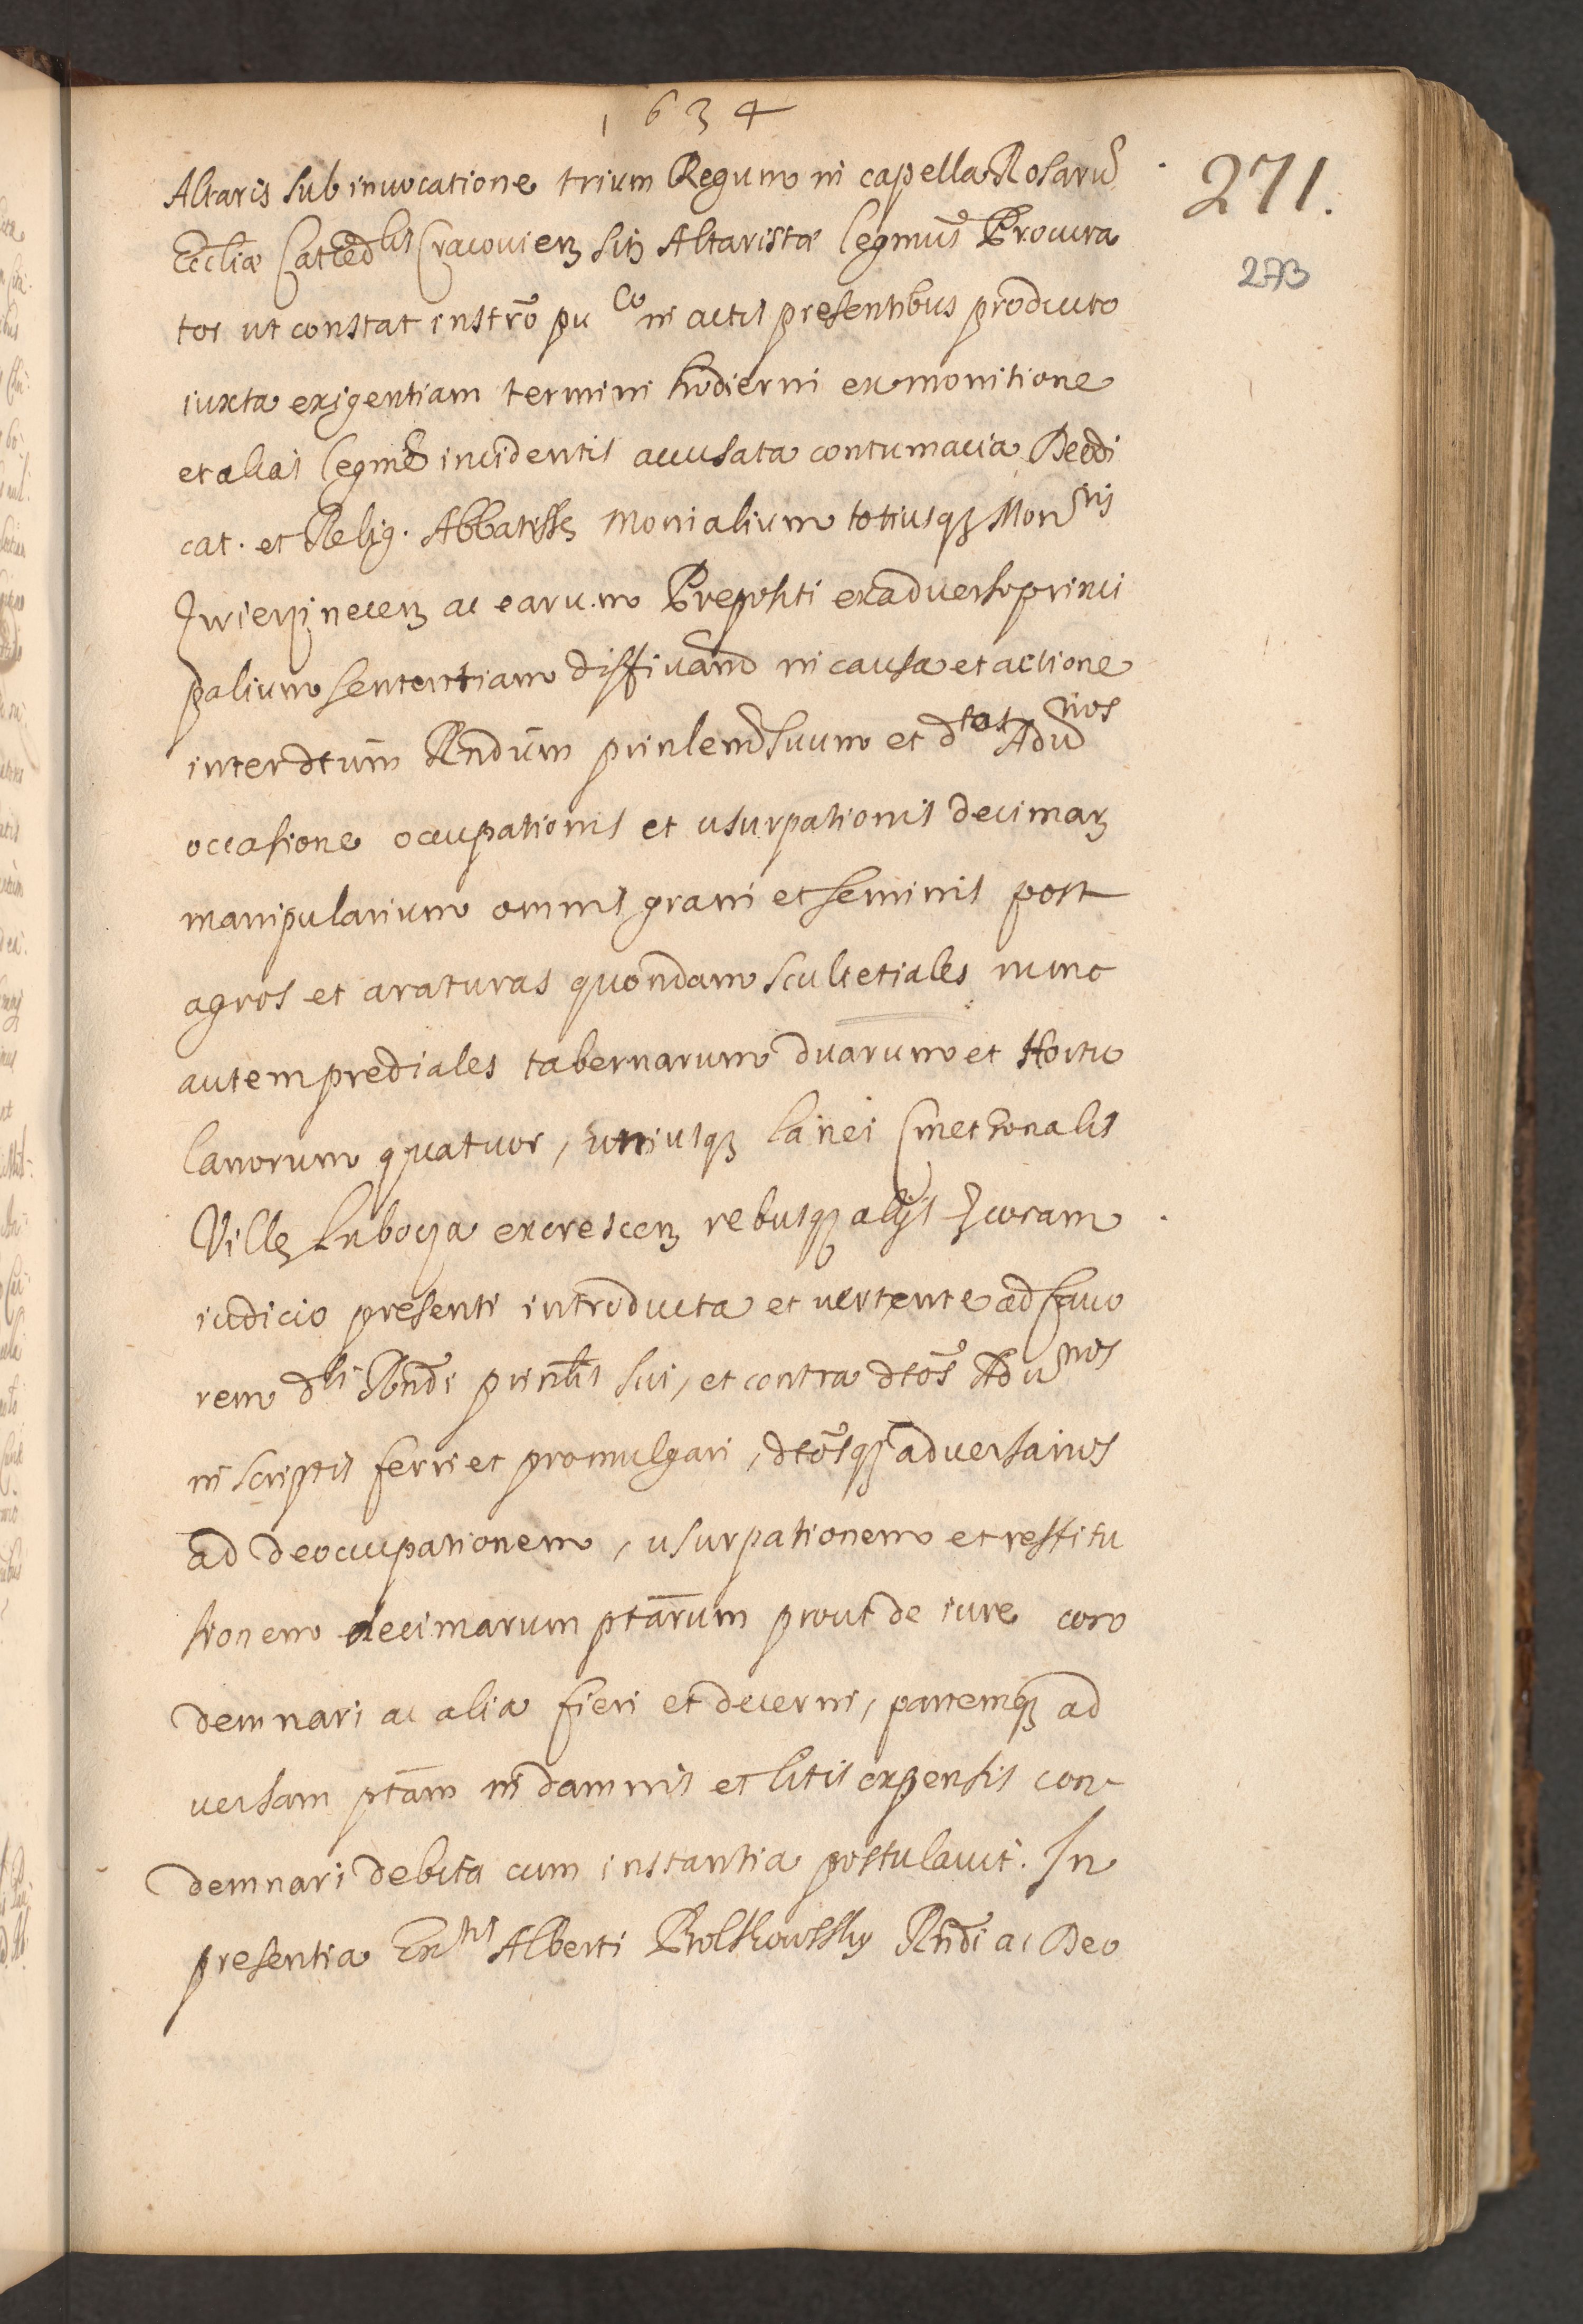 1634
271.
273
Altaris sub invocatione trium Regum in capella Rosarū
Eccliæ Catedlis Cracovien sitȝ Altaristæ legmus Procura
tor ut constat instrō puco in actis presentibus producto
iuxta exigentiam termini hodierni ex monitione
et alias legme incidentis accusata contumacia Deodi
cat. et Relig. Abbatissę Monialium totiusqȝ Monrij
Zwierzinecen ac earum Prepositi ex adverso princi
palium sententiam diffivam in causa et actione
inter dtum Rndum prinlem suum et dtas Advrios
occasione occupationis et usurpationis decimarȝ
manipularium omnis grani et seminis post
agros et araturas quondam scultetiales nunc
autem prediales tabernarum duarum et Hortu
lanorum quatuor, uniusqȝ lanei Cmethonalis
Villę Lubocza excrescen rebusqȝ alijs coram
iudicio presenti introducta et vertente ad favo
rem dti Rndi prinlis sui, et contra dtos Advrios
in scriptis ferri et promulgari, dtosqȝ adversarios
ad deoccupationem, usurpationem et restitu
tionem decimarum ptarum prout de iure con
demnari ac alia fieri et decerni, partemqȝ ad
versam ptam in damnis et litis expensis con-
demnari debita cum instantia postulavit. In
presentia Exltis Alberti Rndi ac Deo